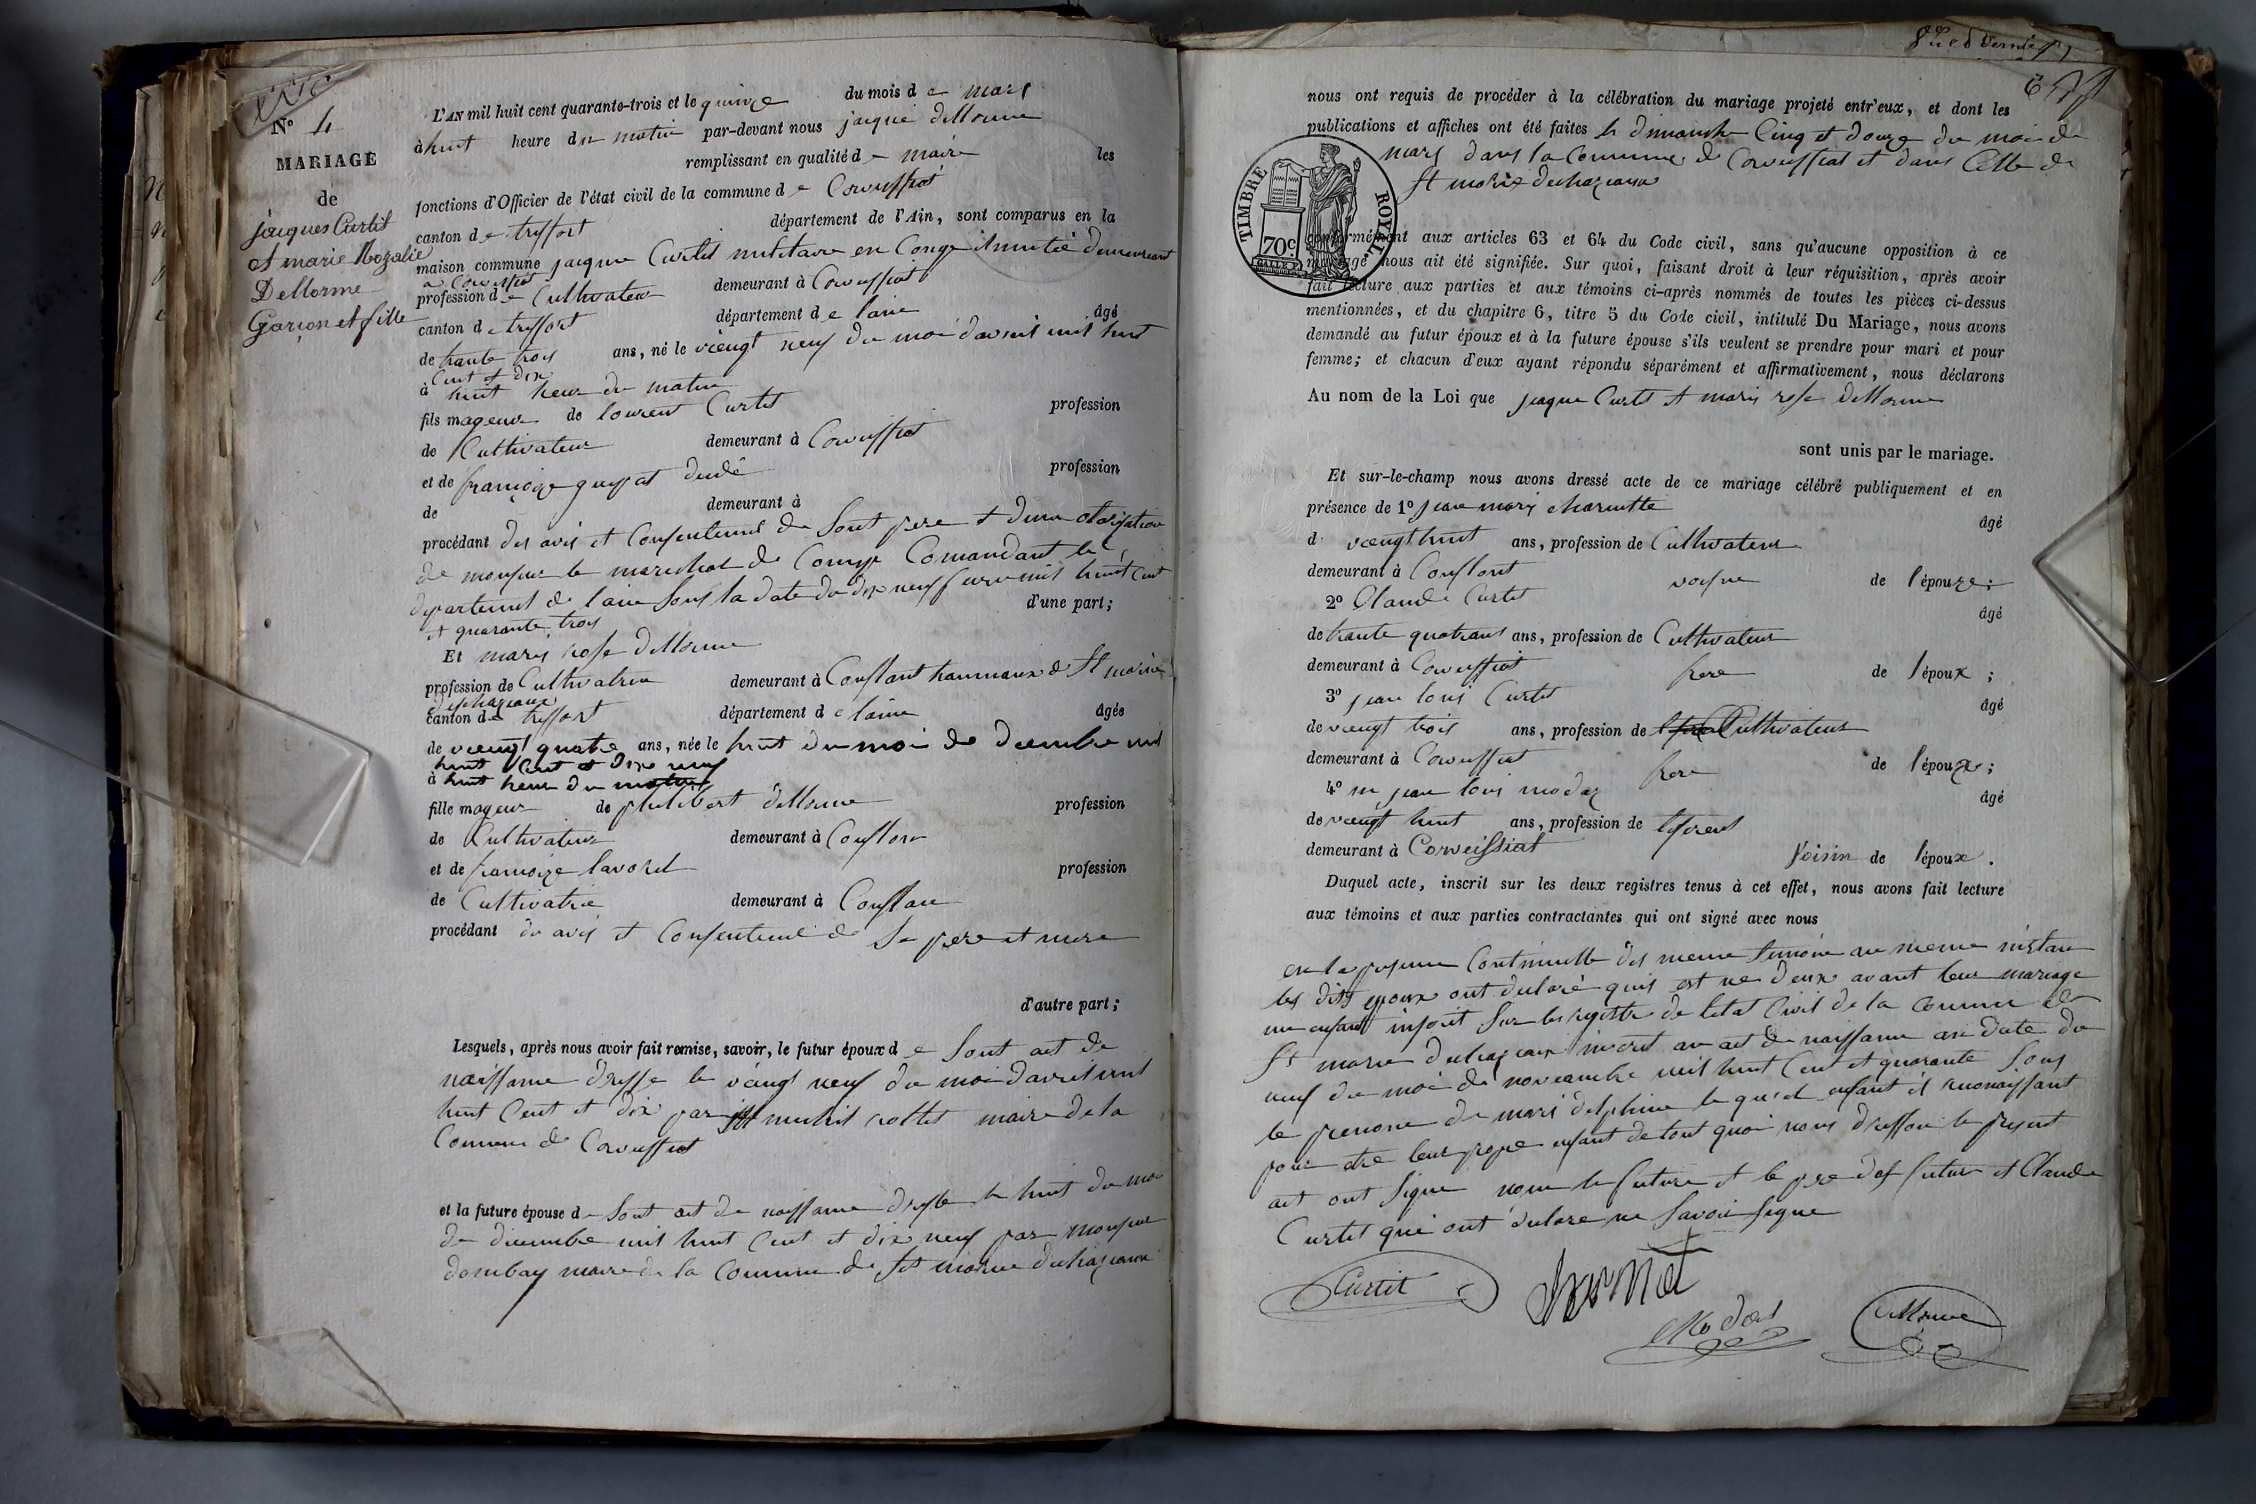 N° 4
MARIAGE
de
jacques Curtit
et marie Rozalie
Dellorme
Garçon et fille
L'AN mil huit cent quarante-trois et le quinze du mois de mars
à huit heure du matin par-devant nous jacque dellorme
remplissant en qualité de maire les
fonctions d'Officier de l'état civil de la commune de Corveissiat
canton de treffort département de l'Ain, sont comparus en la
maison commune jacque Curtit militaire en Conge demeurant
a Corveissiat
profession de Cultivateur demeurant à Corveissiat
canton de treffort département de lain âgé
de trante trois ans, né le viengt neuf du moi davril mil huit
Cent et dix
à huit heur du matin
fils mageur de lourent Curtit profession
de Cultivateur demeurant à Corveissiat
et de françoize profession
de demeurant à
procédant des avis et Consentement de Sont pere et dune otorisation
de monsieur le marechal de Comp Comandant le
departement de lain Sous la date du dix neuf mil huit Cent
et quarante trois
d'une part;
Et marie rose dellorme
profession de Cultivatrice demeurant à Conflant hammaux de St morice
dechazeaux
canton de treffort département de lain âgée
de vieengt quatre ans, née le huit du moi de decembre mil
huit Cent et dix neuf
à huit heur du matin
fille mageur de philibert dellorme profession
de Cultivateur demeurant à Conflan
et de françoize lavorel profession
de Cultivatrice demeurant à Conflan
procédant du avis et Consentement de Se pere et mere
d'autre part;
Lesquels, après nous avoir fait remise, savoir, le futur époux de Sont act de
naissance dresse le vieengt neuf du moi davril mil
huit Cent et dix par maire de la
Comune de Corveissiat
et la future épouse de Sont act de naissance dresse le huit du moi
de decembre mil huit Cent et dix neuf par monsieur
dombay maire de la Comune de St morice dechazeaux
nous ont requis de procéder à la célébration du mariage projeté entr'eux, et dont les
publications et affiches ont été faites le dimanche Cinq et douze du moi de
mars dans la Comune de Corveissiat et dans Celle de
St morice dechazeaux
TIMBRE ROYAL
70c
conformément aux articles 63 et 64 du Code civil, sans qu'aucune opposition à ce
mariage nous ait été signifiée. Sur quoi, faisant droit à leur réquisition, après avoir
fait lecture aux parties et aux témoins ci-après nommés de toutes les pièces ci-dessus
mentionnées, et du chapitre 6, titre 5 du Code civil, intitulé Du Mariage, nous avons
demandé au futur époux et à la future épouse s'ils veulent se prendre pour mari et pour
femme; et chacun d'eux ayant répondu séparément et affirmativement, nous déclarons
Au nom de la Loi que jaque Curtit et marie rose dellorme
sont unis par le mariage.
Et sur-le-champ nous avons dressé acte de ce mariage célébré publiquement et en
présence de 1° jean marie charnette
âgé
d. vieengt huit ans, profession de Cultivateur
demeurant à Conflant voisine de l'épouze;
2° Claude Curtit
âgé
de trante quatrans ans, profession de Cultivateur
demeurant à Corveissiat frere de l'époux;
3° jean louis Curtit
âgé
de vieengt trois ans, profession de Cultivateur
demeurant à Corveissiat frere de l'époux;
4° jean louis modaz
âgé
de vieengt huit ans, profession de tiserent
demeurant à Corveissiat Voisin de l'époux.
Duquel acte, inscrit sur les deux registres tenus à cet effet, nous avons fait lecture
aux témoins et aux parties contractantes qui ont signé avec nous
en la presence Continuelle des meme temoin au meme instan
les dits epoux ont declaré quis est ne deux avant leur mariage
un enfant inscrit Sur les registre de letat Civil de la Comune de
St morice dechazeaux inscrit au act de naissance en date du
neuf du moi de noveambre mil huit Cent et quarante Sous
le prenome de mari delphine le quel enfant il reconaissant
pour etre leur prope enfant de tout quoi nous dressons le present
act ont Signe nom la future et le pere des futur et Claude
Curtit qui ont declare ne Savoir Signe
Curtit
Modas
dellorme